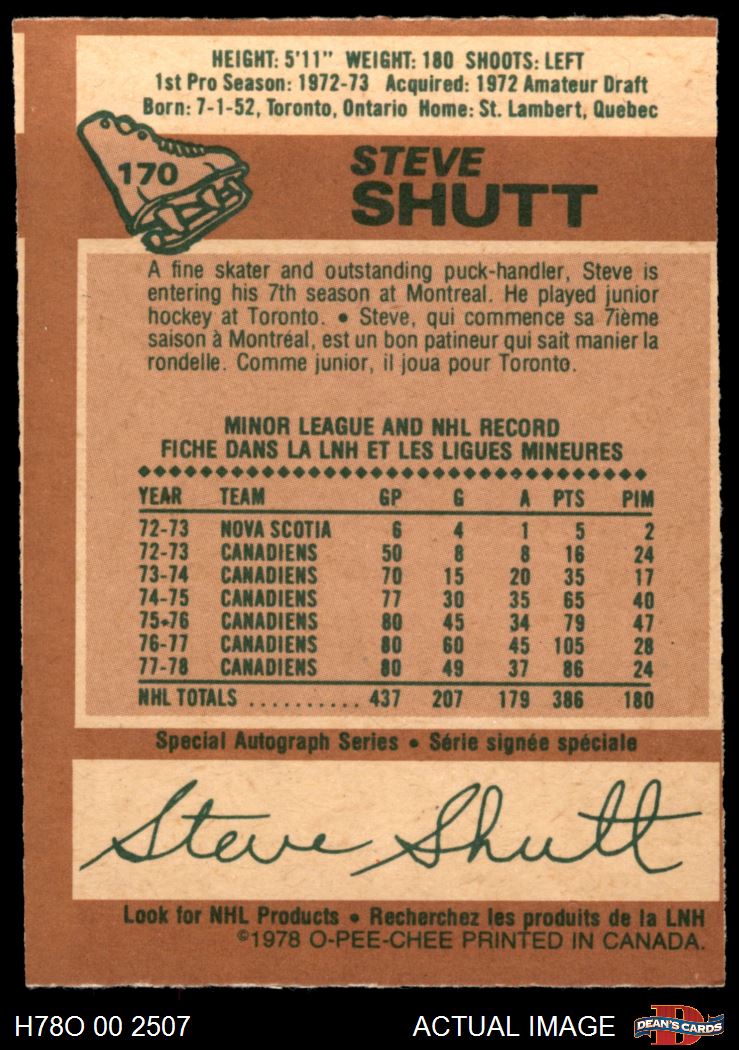 HEIGHT: 5'11" WEIGHT: 180 SHOOTS: LEFT
1st Pro Season: 1972-73 Acquired: 1972 Amateur Draft
Born: 7-1-52, Toronto, Ontario Home: St. Lambert, Quebec
170
STEVE
SHUTT
A fine skater and outstanding puck-handler, Steve is
entering his 7th season at Montreal. He played junior
hockey at Toronto. • Steve, qui commence sa 7ième
saison à Montréal, est un bon patineur qui sait manier la
rondelle. Comme junior, il joua pour Toronto.
MINOR LEAGUE AND NHL RECORD
FICHE DANS LA LNH ET LES LIGUES MINEURES
YEAR TEAM GP G A PTS PIM
72-73 NOVA SCOTIA 6 4 1 5 2
72-73 CANADIENS 50 8 8 16 24
73-74 CANADIENS 70 15 20 35 17
74-75 CANADIENS 77 30 35 65 40
75-76 CANADIENS 80 45 34 79 47
76-77 CANADIENS 80 60 45 105 28
77-78 CANADIENS 80 49 37 86 24
NHL TOTALS .......... 437 207 179 386 180
Special Autograph Series • Série signée spéciale
Steve Shutt
Look for NHL Products • Recherchez les produits de la LNH
©1978 O-PEE-CHEE PRINTED IN CANADA.
H78O 00 2507 ACTUAL IMAGE D DEAN'S CARDS